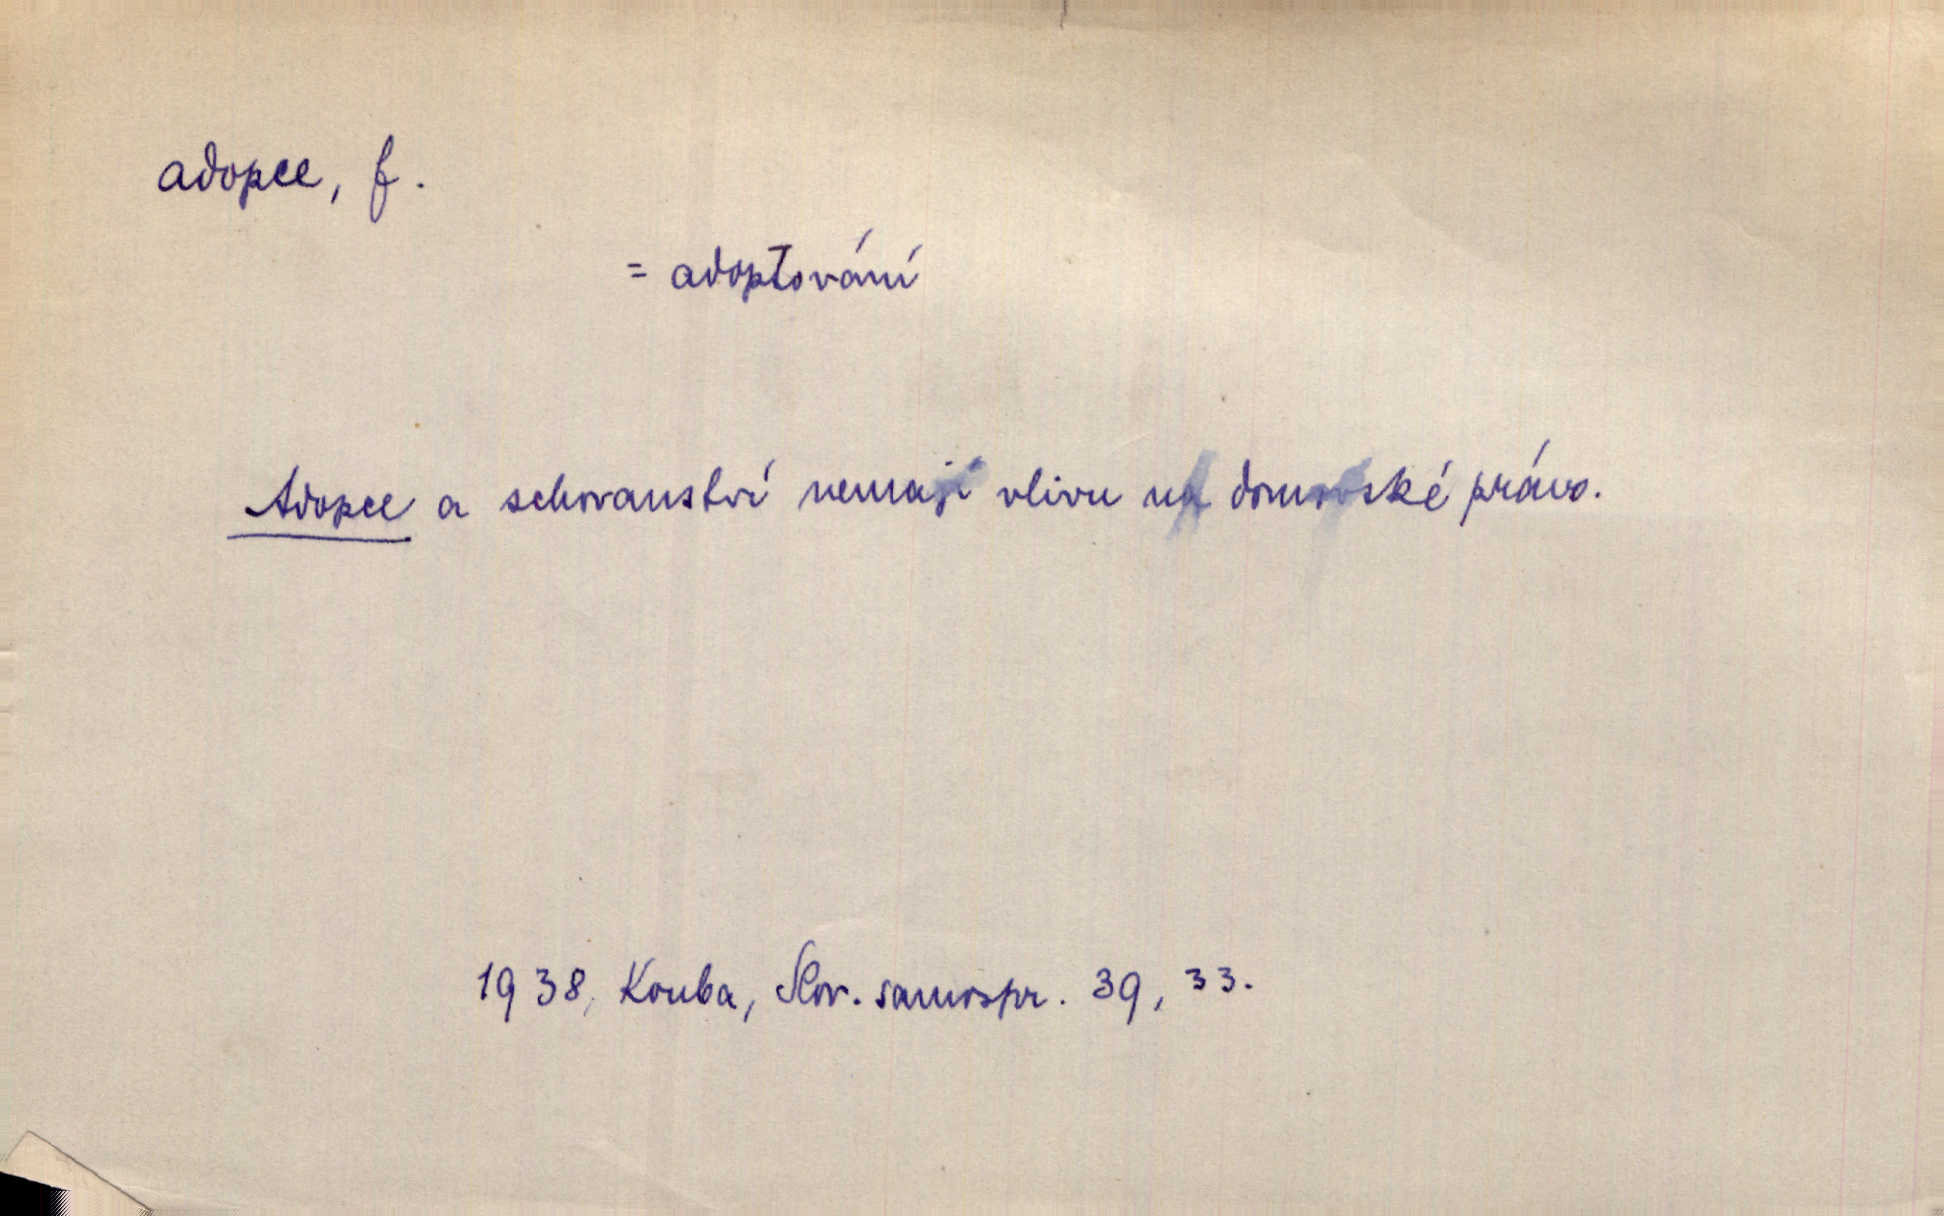 adopce, f.
= adoptování
Adopce a schovanství nemají vlivu na domovské právo.
1938, Kouba, Slov. samospr. 39, 33.